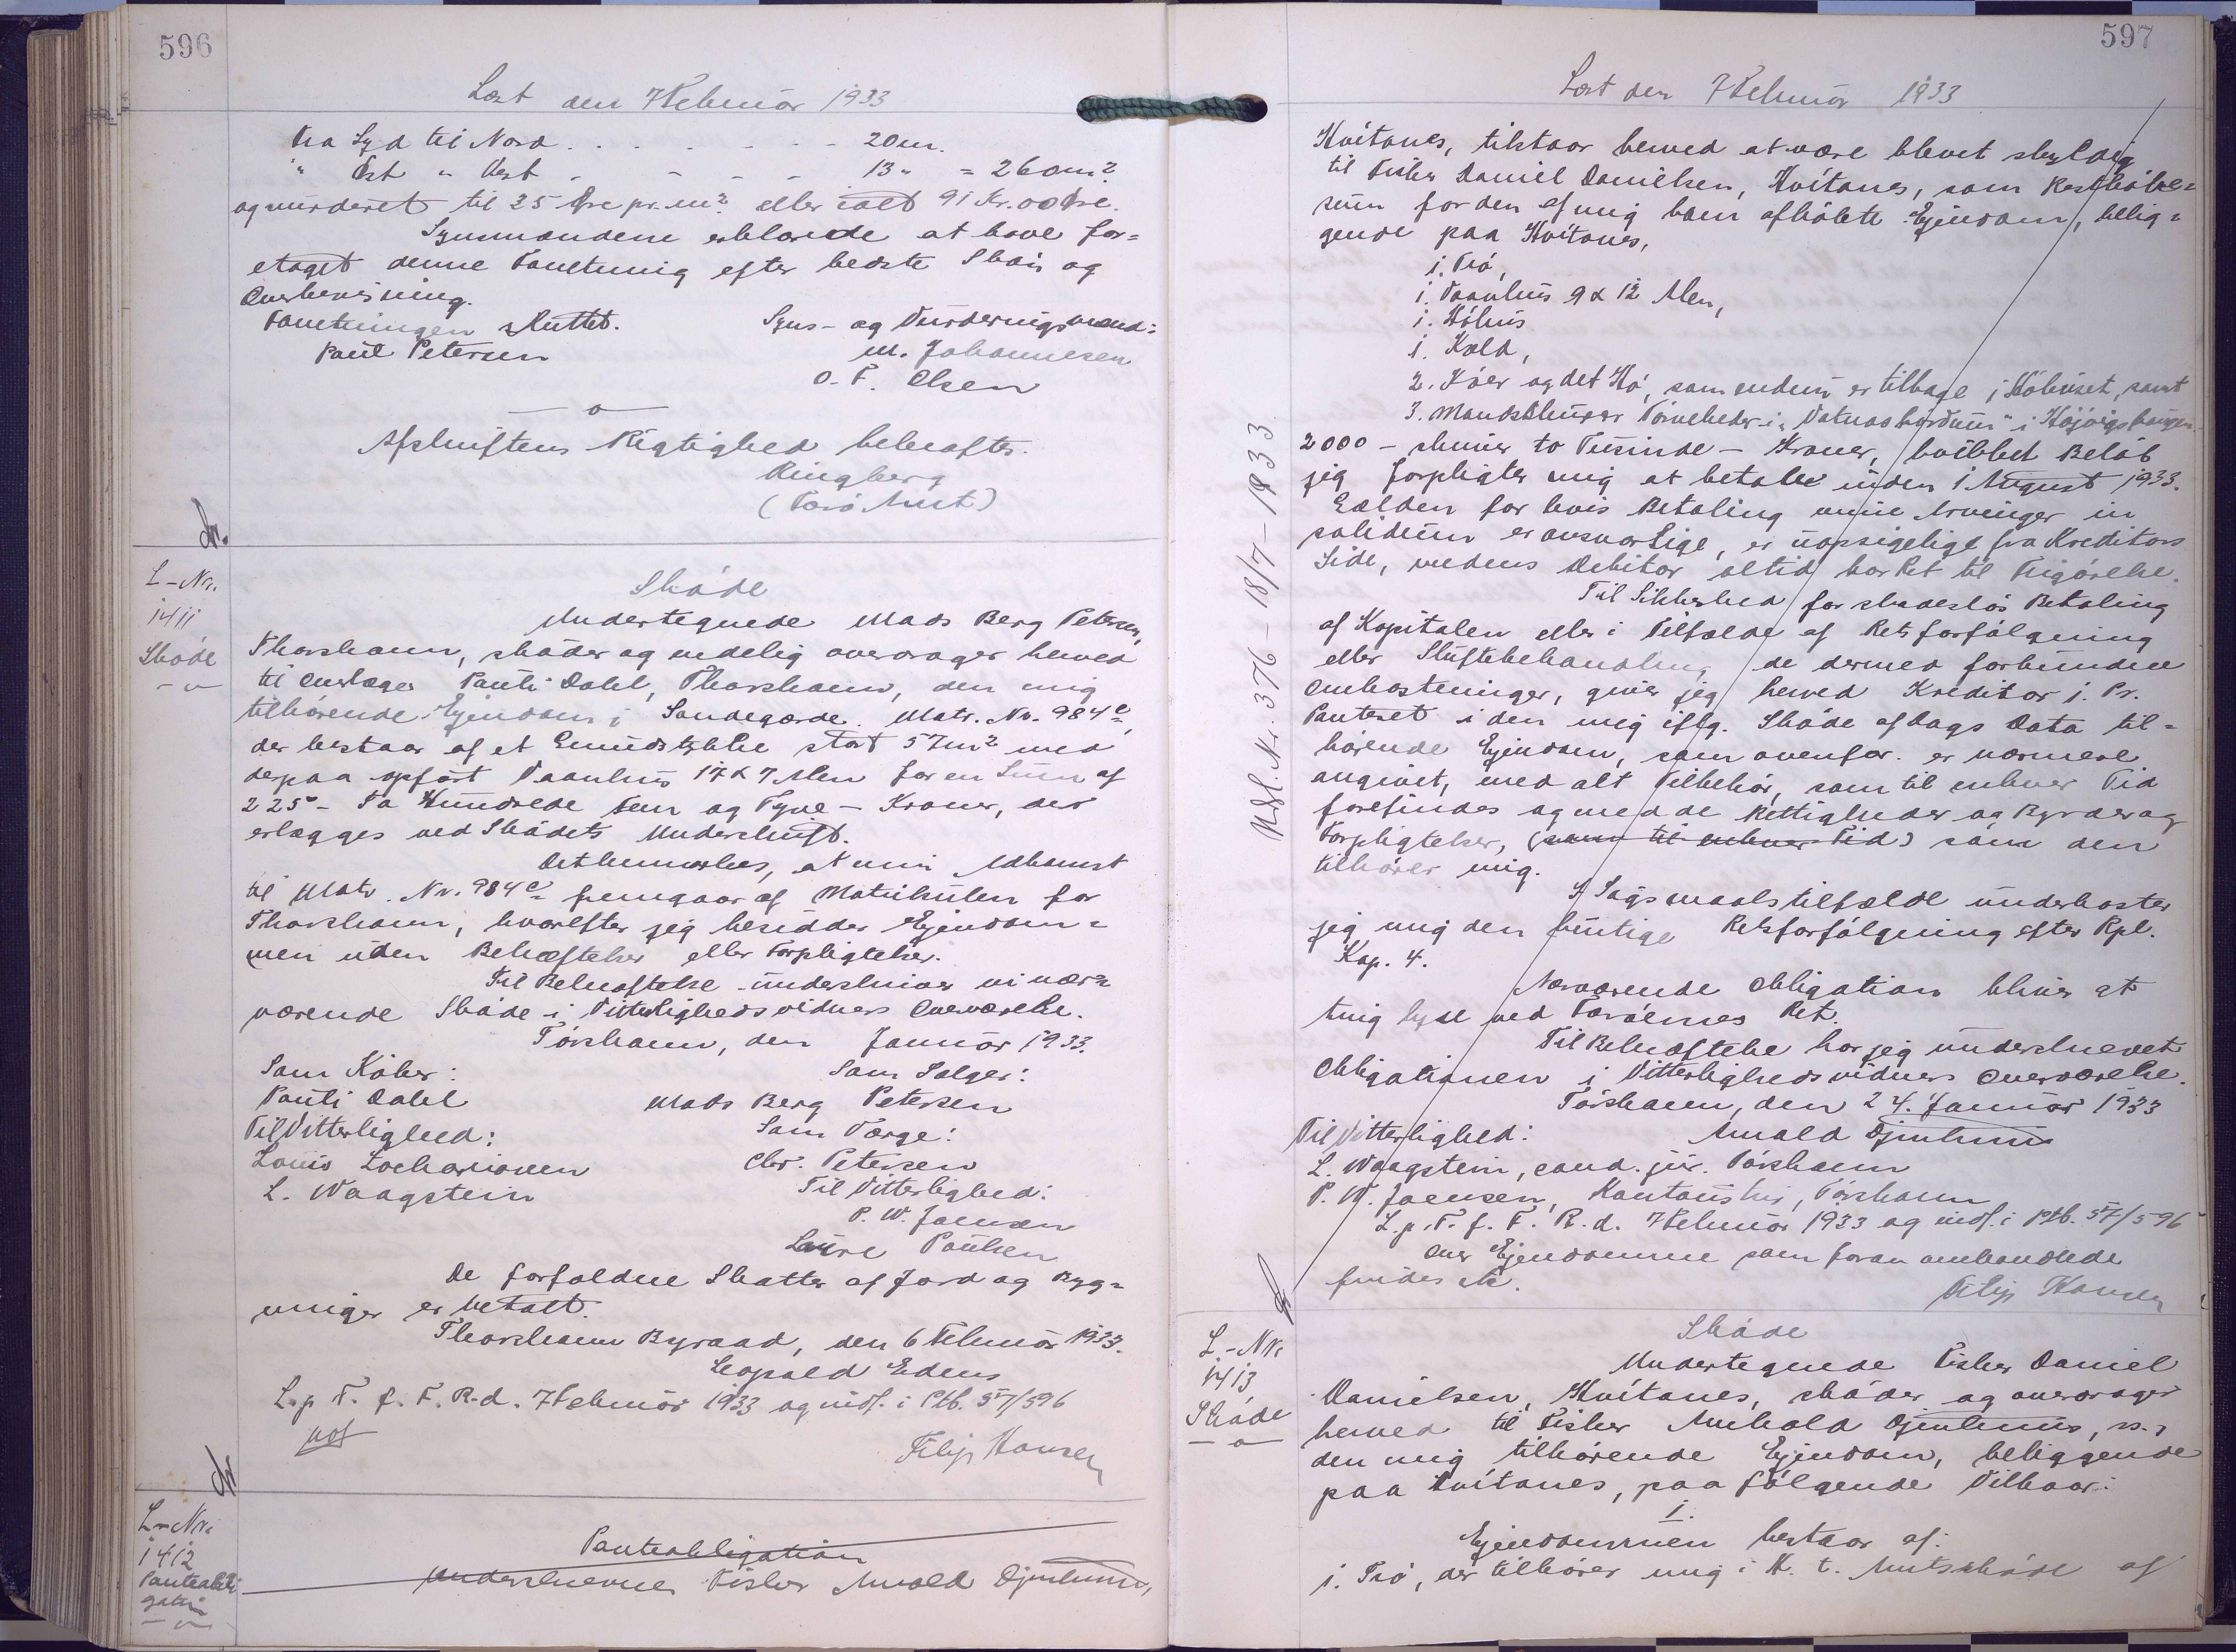 596
Læst den 7 Februar 1933
Fra Syd til Nord . . . . . . 20 m.
" Øst " Vest - - - - 13 " = 260 m²
og vurderet til 35 Øre pr. m² eller ialt 91 Kr. 00 Øre.
Synsmændene erklærede at have for=
etaget denne Forretning efter bedste Skøn og
Overbevisning.
Forretningen sluttet.
Syns- og Vurderingsmænd:
Poul Petersen
M. Johannesen
O. F. Olsen
Afskriftens Rigtighed bekræftes.
Ringberg
(Færø Amt)
L-Nr.
1411
Skøde
Skøde
Undertegnede Mads Berg Petersen,
Thorshavn, skøder og endelig overdrager herved
til Overlæge Pauli Dahl, Thorshavn, den mig
tilhørende Ejendom i Sandegærde. Matr. Nr. 984e,
der bestaar af et Grundstykke stort 57 m² med
derpaa opført Vaanhus 17 x 7 Alen for en Sum af
225 - To Hundrede fem og Tyve - Kroner, der
erlægges ved Skødets Underskrift.
Det bemærkes, at min Adkomst
til Matr. Nr. 984e fremgaar af Matrikulen for
Thorshavn, hvorefter jeg besidder Ejendom=
men uden Behæftelser eller Forpligtelser.
Til Bekræftelse underskriver vi nær=
værende Skøde i Vitterlighedsvidners Overværelse.
Tórshavn, den Januar 1933.
Som Køber:
Som Sælger:
Pauli Dahl
Mads Berg Petersen
Til Vitterlighed:
Som Værge:
Louis Zachariasen
Chr. Petersen
L. Waagstein
Til Vitterlighed:
P. W. Joensen
Laura Poulsen
De forfaldne Skatter af Jord og Byg=
ninger er betalt.
Thorshavn Byraad, den 6 Februar 1933.
Leopold Edens
L.p. T. f. F. R. d. 7 Februar 1933 og indf. i Ptb. 57/596
Filip Hansen
L-Nr.
1412
Panteobli
gation
Panteobligation
Underskrevne Fisker Arnold Djurhuus,
597
Læst den 7 Februar 1933
Hvítanes, tilstaar herved at være blevet skyldig
til Fisker Daniel Danielsen, Hvítanes, som Restkøbe=
sum for den af mig ham afkøbte Ejendom, belig=
gende paa Hvítanes,
1. Tró,
1. Vaanhus 9 x 12 Alen,
1. Høhus
1. Kæld,
2. Køer og det Hø, som endnu er tilbage i Høhuset, samt
2000 - skriver to Tusinde - Kroner, hvilket Beløb
jeg forpligter mig at betale inden 1 August 1933.
Gælden for hvis Betaling mine Arvinger in
solidum er ansvarlige, er uopsigelige fra Kreditors
Side, medens Debitor altid har Ret til Frigørelse.
Til Sikkerhed for skadesløs Betaling
af Kapitalen eller i Tilfælde af Retsforfølgning
eller Skiftebehandling, de dermed forbundne
Omkostninger, giver jeg herved Kreditor 1. Pr.
Panteret i den mig iflg. Skøde af Dags Dato til=
hørende Ejendom, som ovenfor er nærmere
angivet, med alt Tilbehør, som til enhver Tid
forefindes og med de Rettigheder og Byrder og
Forpligtelser, (som til enhver Tid) som den
tilhører mig.
I Søgsmaalstilfælde underkaster
jeg mig den hurtige Retsforfølgning efter Rpl.
Kap. 4.
Nærværende Obligation bliver at
tinglyse ved Færøernes Ret.
Til Bekræftelse har jeg underskrevet
Obligationen i Vitterlighedsvidners Overværelse.
Tórshavn, den 24. Januar 1933
Til Vitterlighed:
Arnold Djurhuus
L. Waagstein, cand. jur. Tórshavn
P. W. Joensen, Kontorist, Tórshavn
L.p. T. f. F. R. d. 7 Februar 1933 og indf. i Ptb. 57/596
Over Ejendommene som foran omhandlede
findes ikke.
Filip Hansen
Udsl. Nr. 376 - 18/7 - 1933
L.-Nr.
1413,
Skøde
Skøde
Undertegnede Fisker Daniel
Danielsen, Hvítanes, skøder og overdrager
herved til Fisker Arnold Djurhuus, ss.,
den mig tilhørende Ejendom, beliggende
paa Hvítanes, paa følgende Vilkaar:
1.
Ejendommen bestaar af:
1. Tró, der tilhører mig i H. t. Amtsskøde af